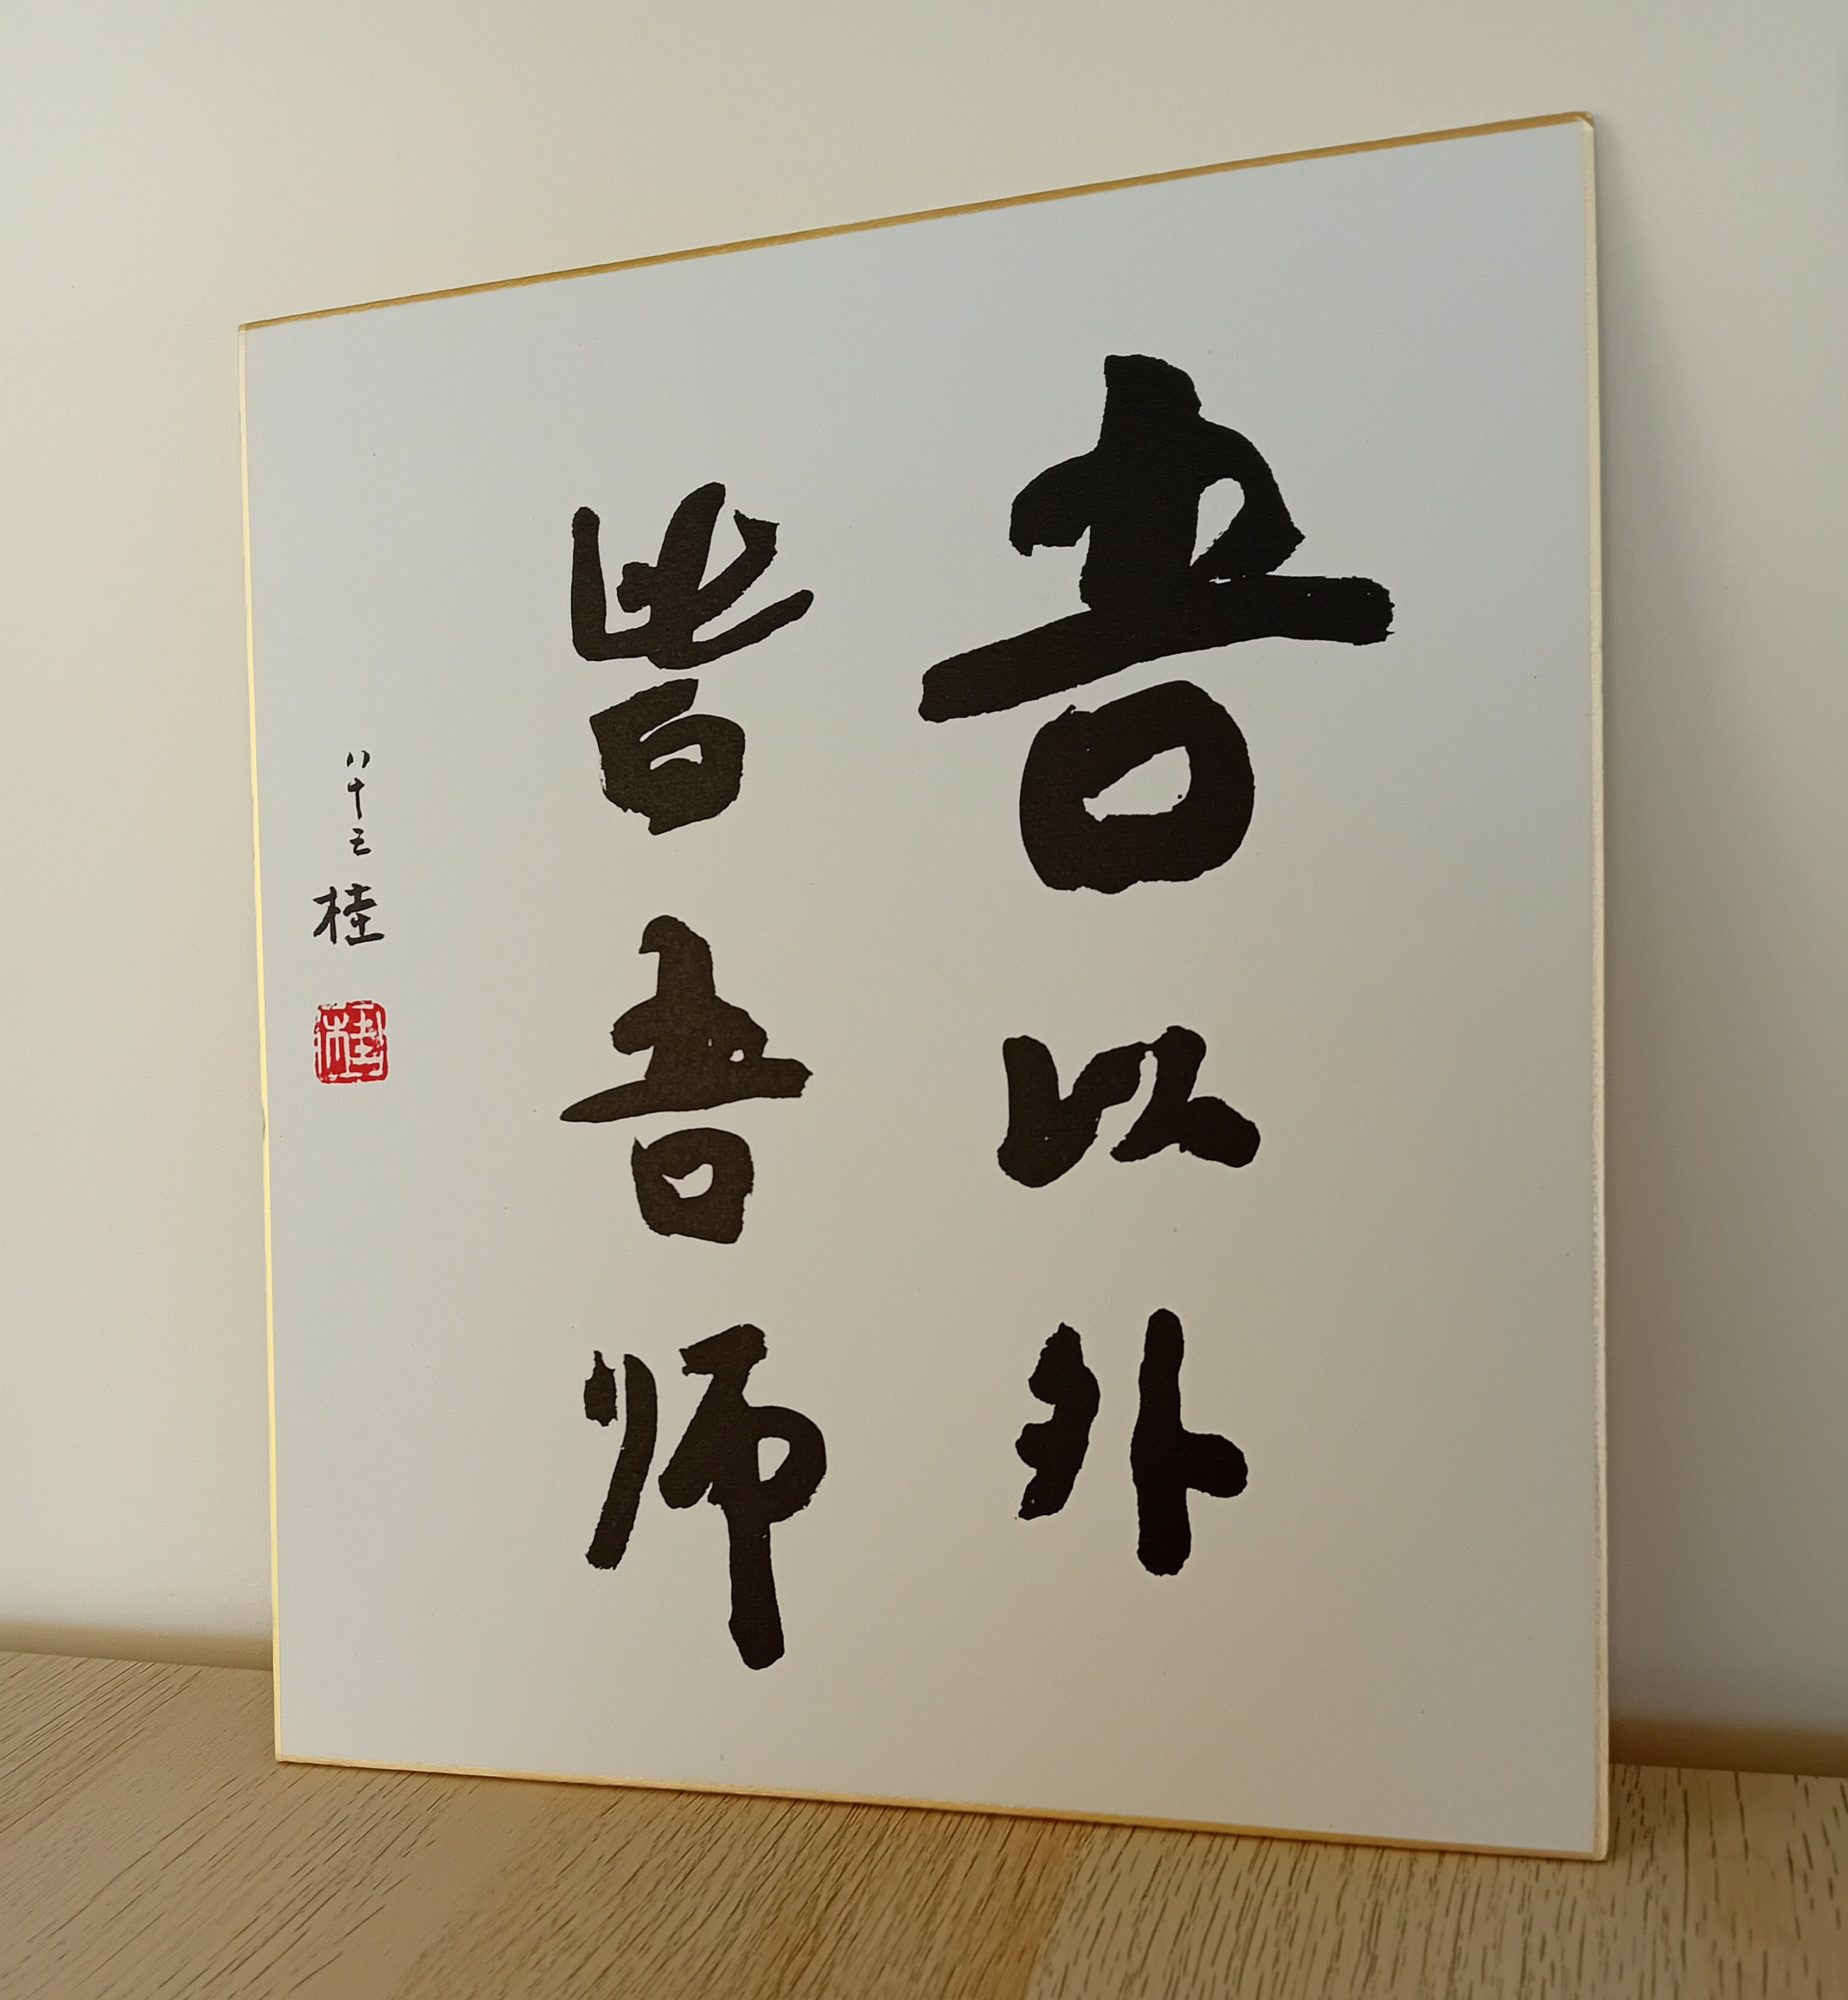 吾以外
皆吾师
八十五 桂
桂